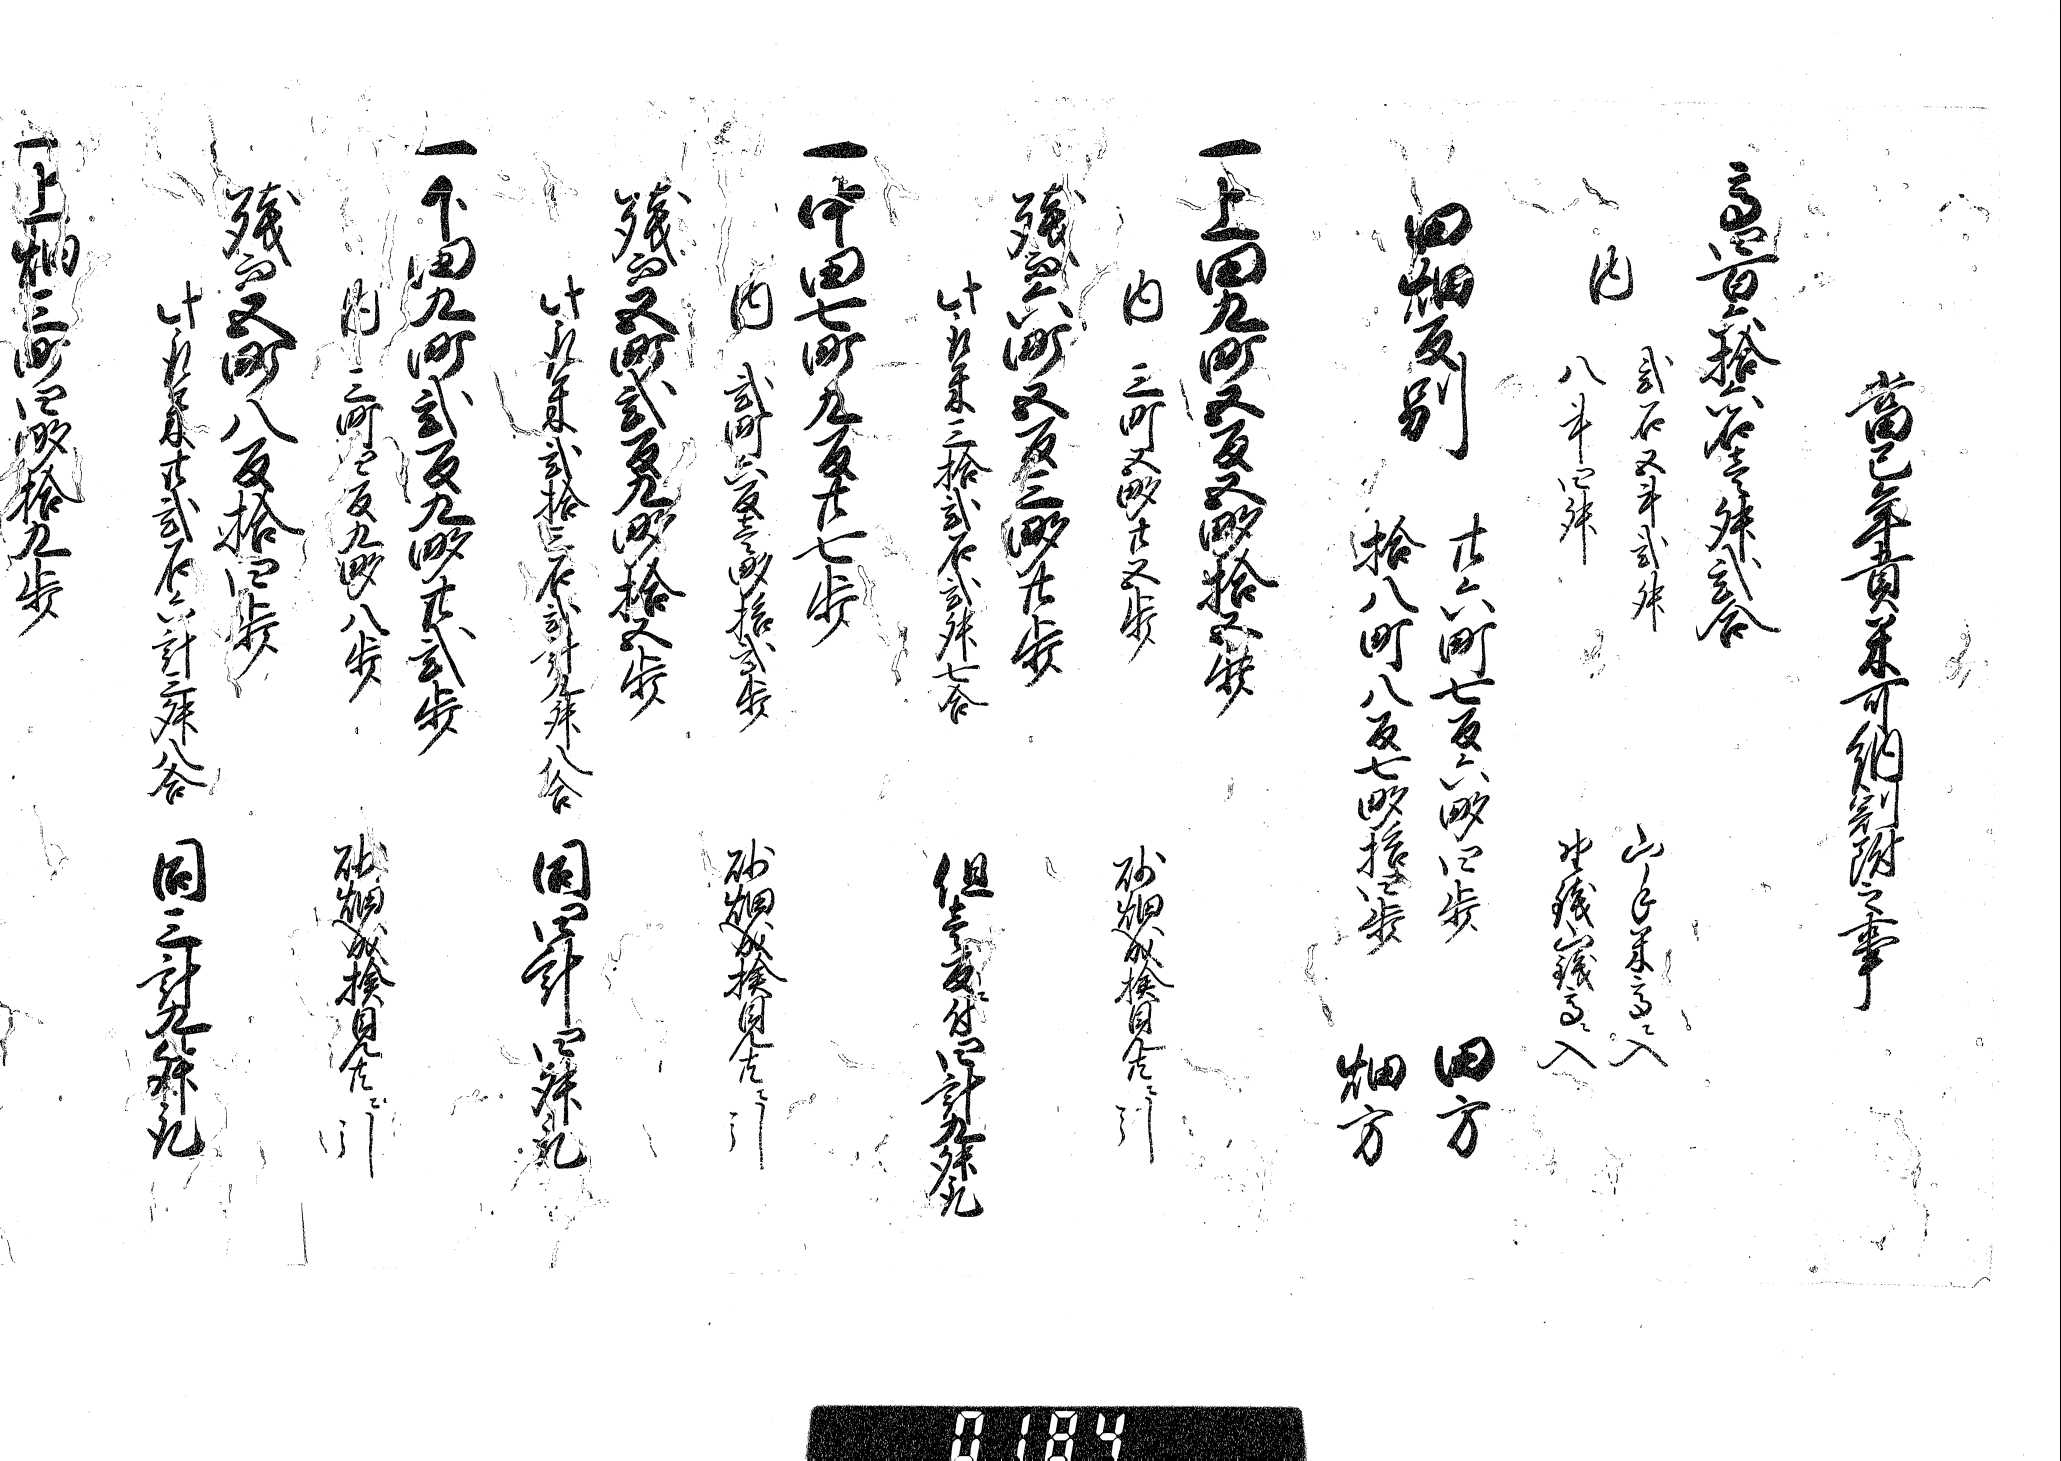 當巳年貢米可納割附之事
高四百六拾六石壱舛弐合
内
弐石五斗弐舛 山手米高ニ入
八斗四舛 野銭山銭高ニ入
田畑反別
廿六町七反六畝四歩 田方
拾八町八反七畝拾四歩 畑方
一上田九町五反五畝拾五歩
内 三町五畝廿五歩 砂畑成検見 ニ引
残而六町五反三畝廿歩
此取米三拾弐石弐舛七合 但壱反ニ付四斗九舛取
一中田七町九反廿七歩
内 弐町六反壱畝拾弐歩 砂畑成検見 ニ引
残而五町弐反九畝拾五歩
此取米弐拾三石弐斗九舛八合 同四斗四舛取
一下田九町弐反九畝廿弐歩
内 三町四反九畝八歩 砂畑成検見 ニ引
残而五町八反拾四歩
此取米廿弐石六斗三舛八合 同三斗九舛取
一上畑三町四畝拾九歩
0184